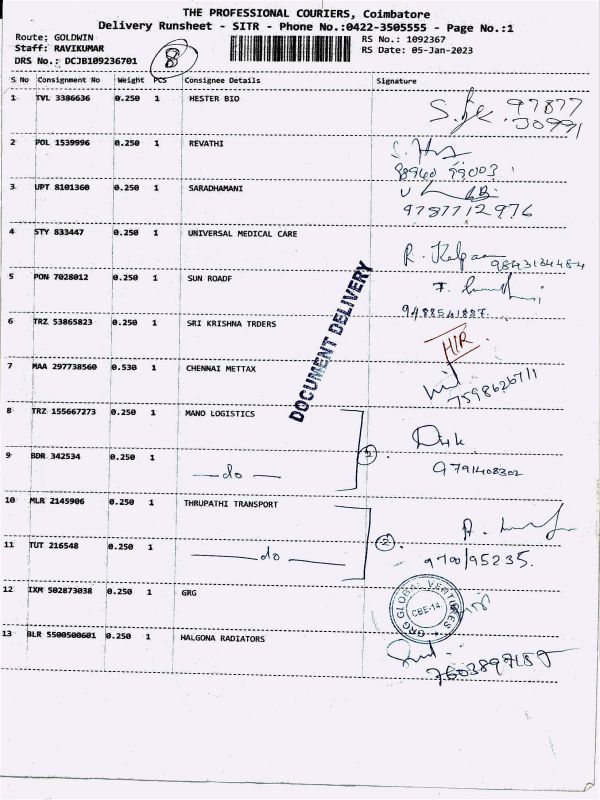 THE PROFESSIONAL COURIERS, Coimbatore
Delivery Runsheet - SITR - Phone No.:0422-3505555 - Page No.:1
Route: GOLDWIN
RS No.: 1092367
Staff: RAVIKUMAR
RS Date: 05-Jan-2023
DRS No.: DCJB109236701
8
S No Consignment No Weight PCS Consignee Details Signature
1 TVL 3386636 0.250 1 HESTER BIO
97877
30991
2 POL 1539996 0.250 1 REVATHI
98940 99003
3 UPT 8101360 0.250 1 SARADHAMANI
9787712976
4 STY 833447 0.250 1 UNIVERSAL MEDICAL CARE
5 PON 7028012 0.250 1 SUN ROADF
9488541887
6 TRZ 53865823 0.250 1 SRI KRISHNA TRDERS
DOCUMENT DELIVERY
7 MAA 297738560 0.530 1 CHENNAI METTAX
7598626711
8 TRZ 155667273 0.250 1 MANO LOGISTICS
9 BDR 342534 0.250 1 —do—
2
9791408302
10 MLR 2145906 0.250 1 THRUPATHI TRANSPORT
11 TUT 216548 0.250 1 —do—
2
9700195235.
12 IXM 502873038 0.250 1 GRG
GRG GLOBAL VENTURES
CBE-14
13 BLR 5500500601 0.250 1 HALGONA RADIATORS